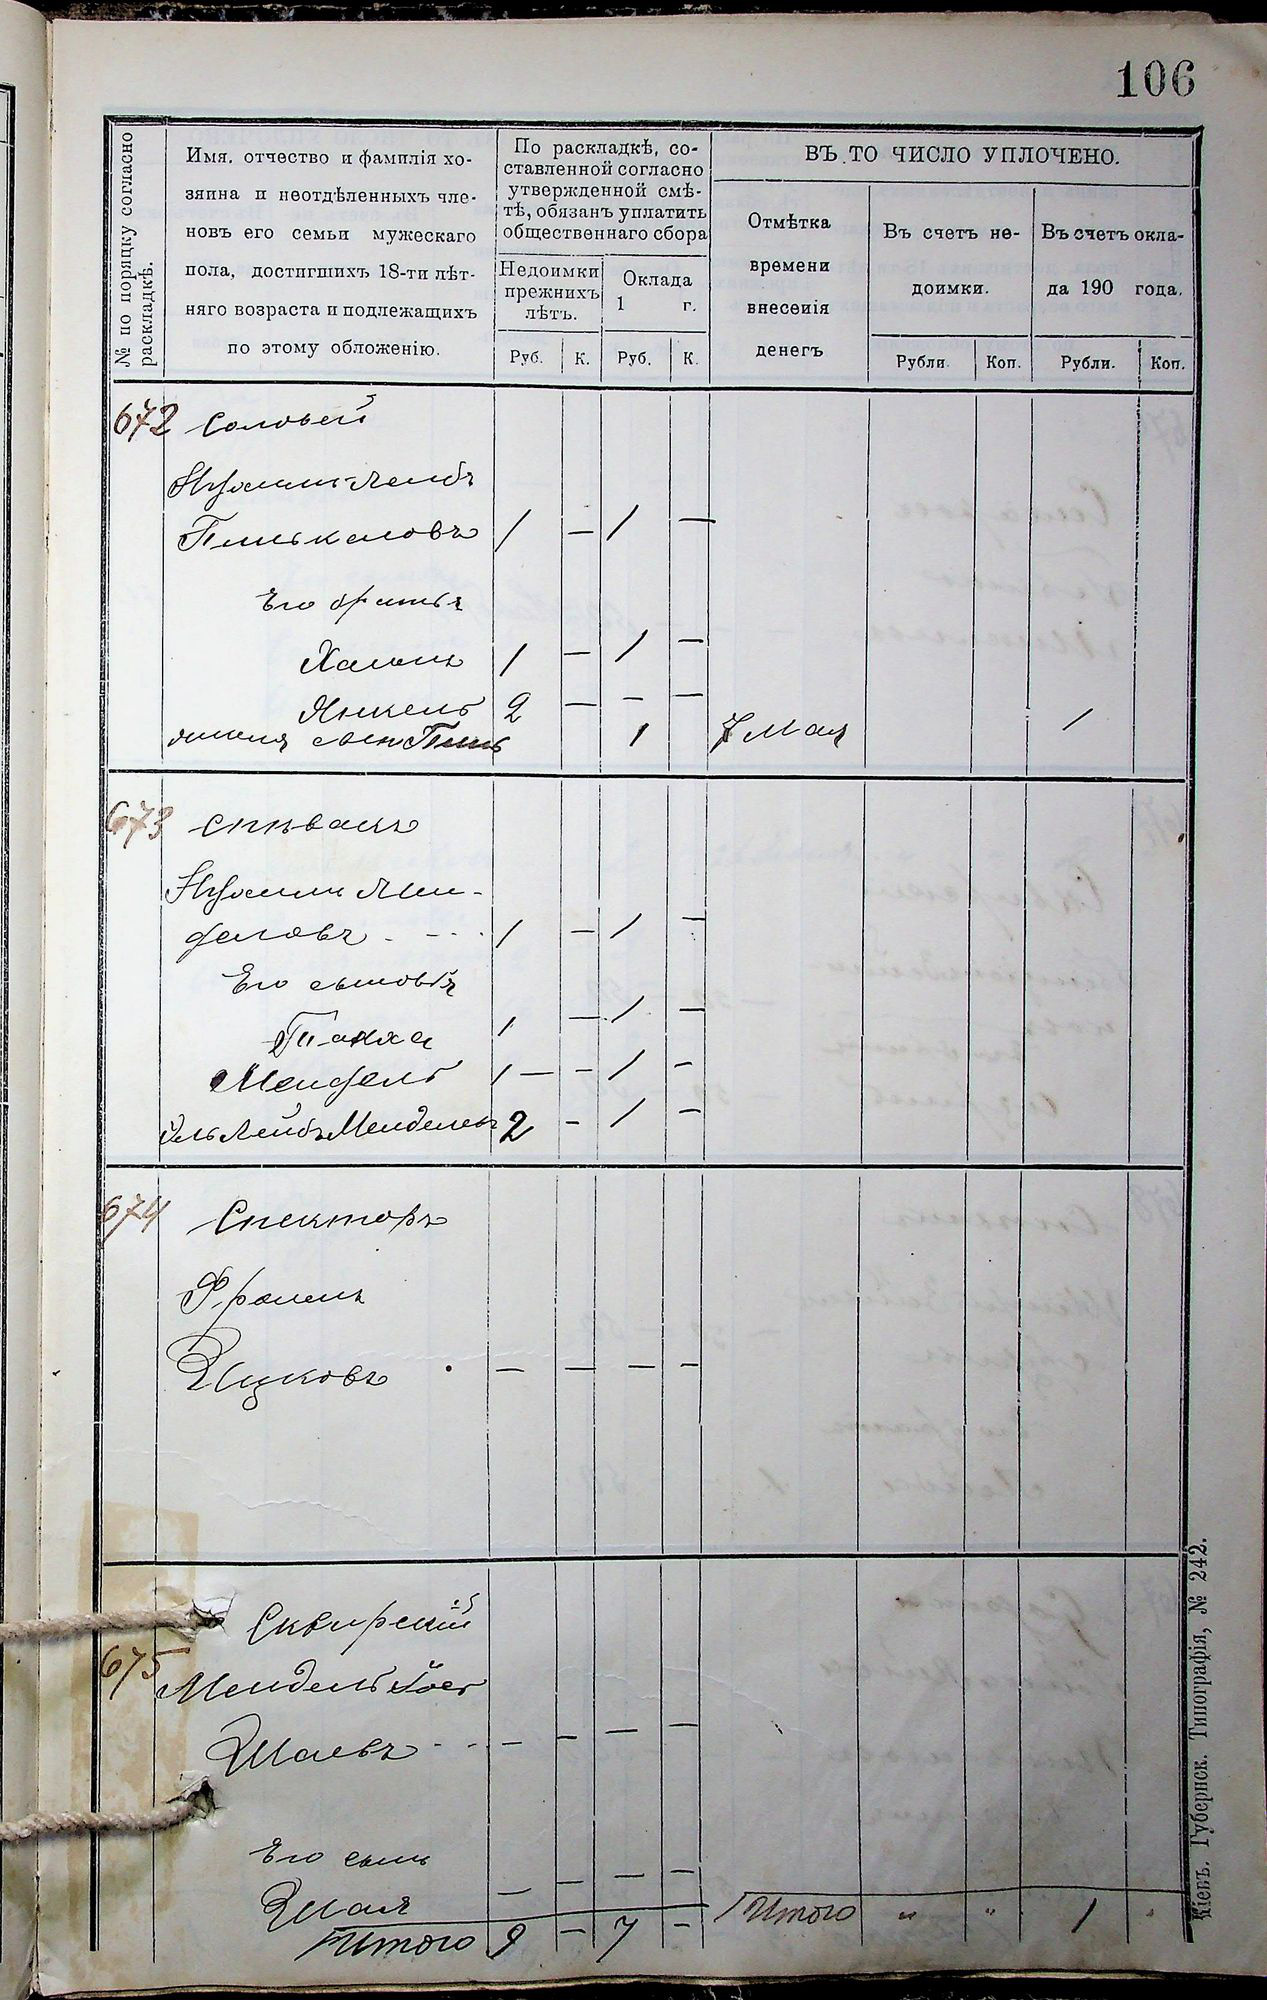 106
№ по порядку согласно раскладкѣ.
Имя, отчество и фамилія хо-
зяина и неотдѣленныхъ чле-
новъ его семьи мужескаго
пола, достигшихъ 18-ти лѣт-
няго возраста и подлежащихъ
по этому обложенію.
По раскладкѣ, со-
ставленной согласно
утвержденной смѣ-
тѣ, обязанъ уплатить
общественнаго сбора
Недоимки
прежнихъ
лѣтъ.
Оклада
1 г.
Руб. К. Руб. К.
ВЪ ТО ЧИСЛО УПЛОЧЕНО.
Отмѣтка
времени
внесенія
денегъ
Въ счетъ не-
доимки.
Рубли. Коп.
Въ счетъ окла-
да 190 года.
Рубли. Коп.
672 Соловей
Пиньказовъ 1 — 1 —
Его братья
Хаимъ 1 — 1 —
Янкель 2 — — —
1 7 Мая 1
673 Спѣвакъ
1 — 1 —
Его сыновья
1 — 1 —
Мендель 1 — — 1 —
Мендель 2 — 1 —
674 Спекторъ
Фроимъ
Ицковъ — — — —
675 Сквирскій
Мендель Іос
Шаевъ — — — —
Его сынъ
Шая — — — —
Итого 9 — 7 —
Итого „ „ 1 „
Кіевъ. Губернск. Типографія, № 242.